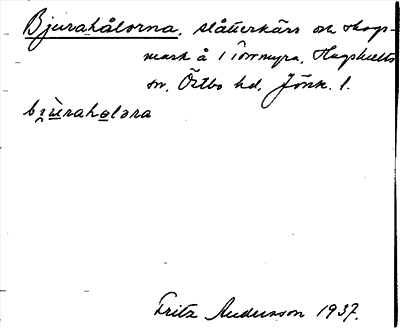 Bjurahålorna, slåtterkärr och skogs-
mark å Tormyra, Hagshults
sn, Östbo hd, Jönk. l.
bjùrahɵlɵra
Fritz Andersson 1937.